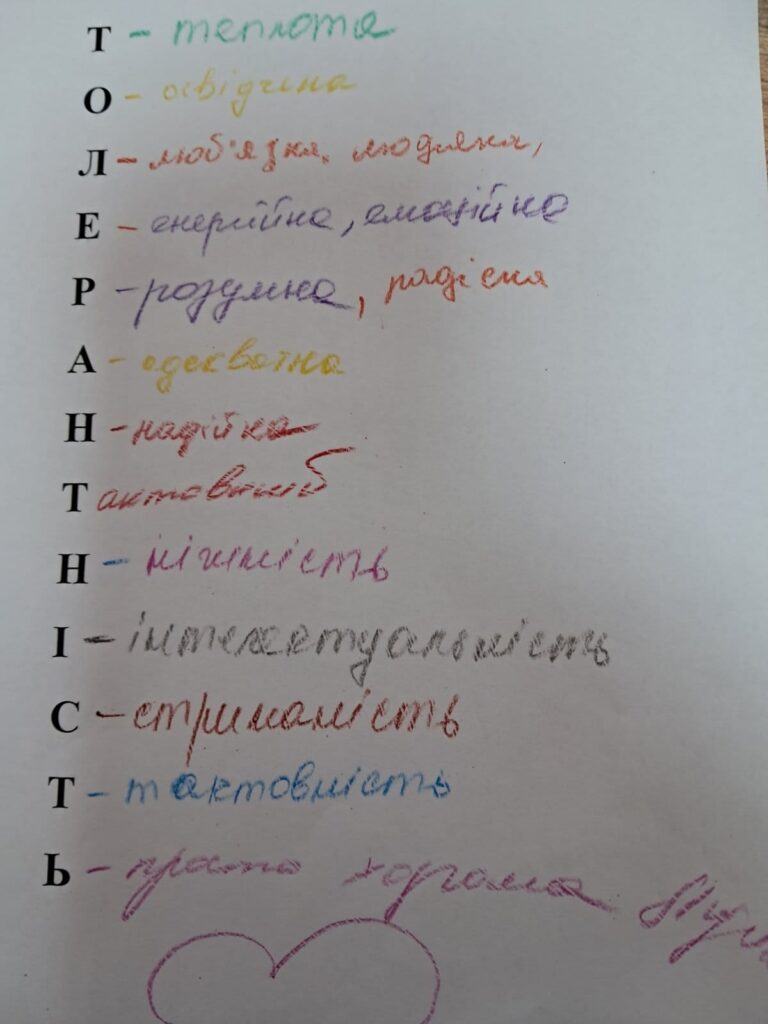 Т - теплота
О - освідчена
Л - люб'язна, людяна,
Е - енергійна, емоційна
Р - розумна, радісна
А - адекватна
Н - надійна
Тактовний
Н - ніжність
І - інтелектуальність
С - стриманість
Т - тактовність
Ь - просто хороша